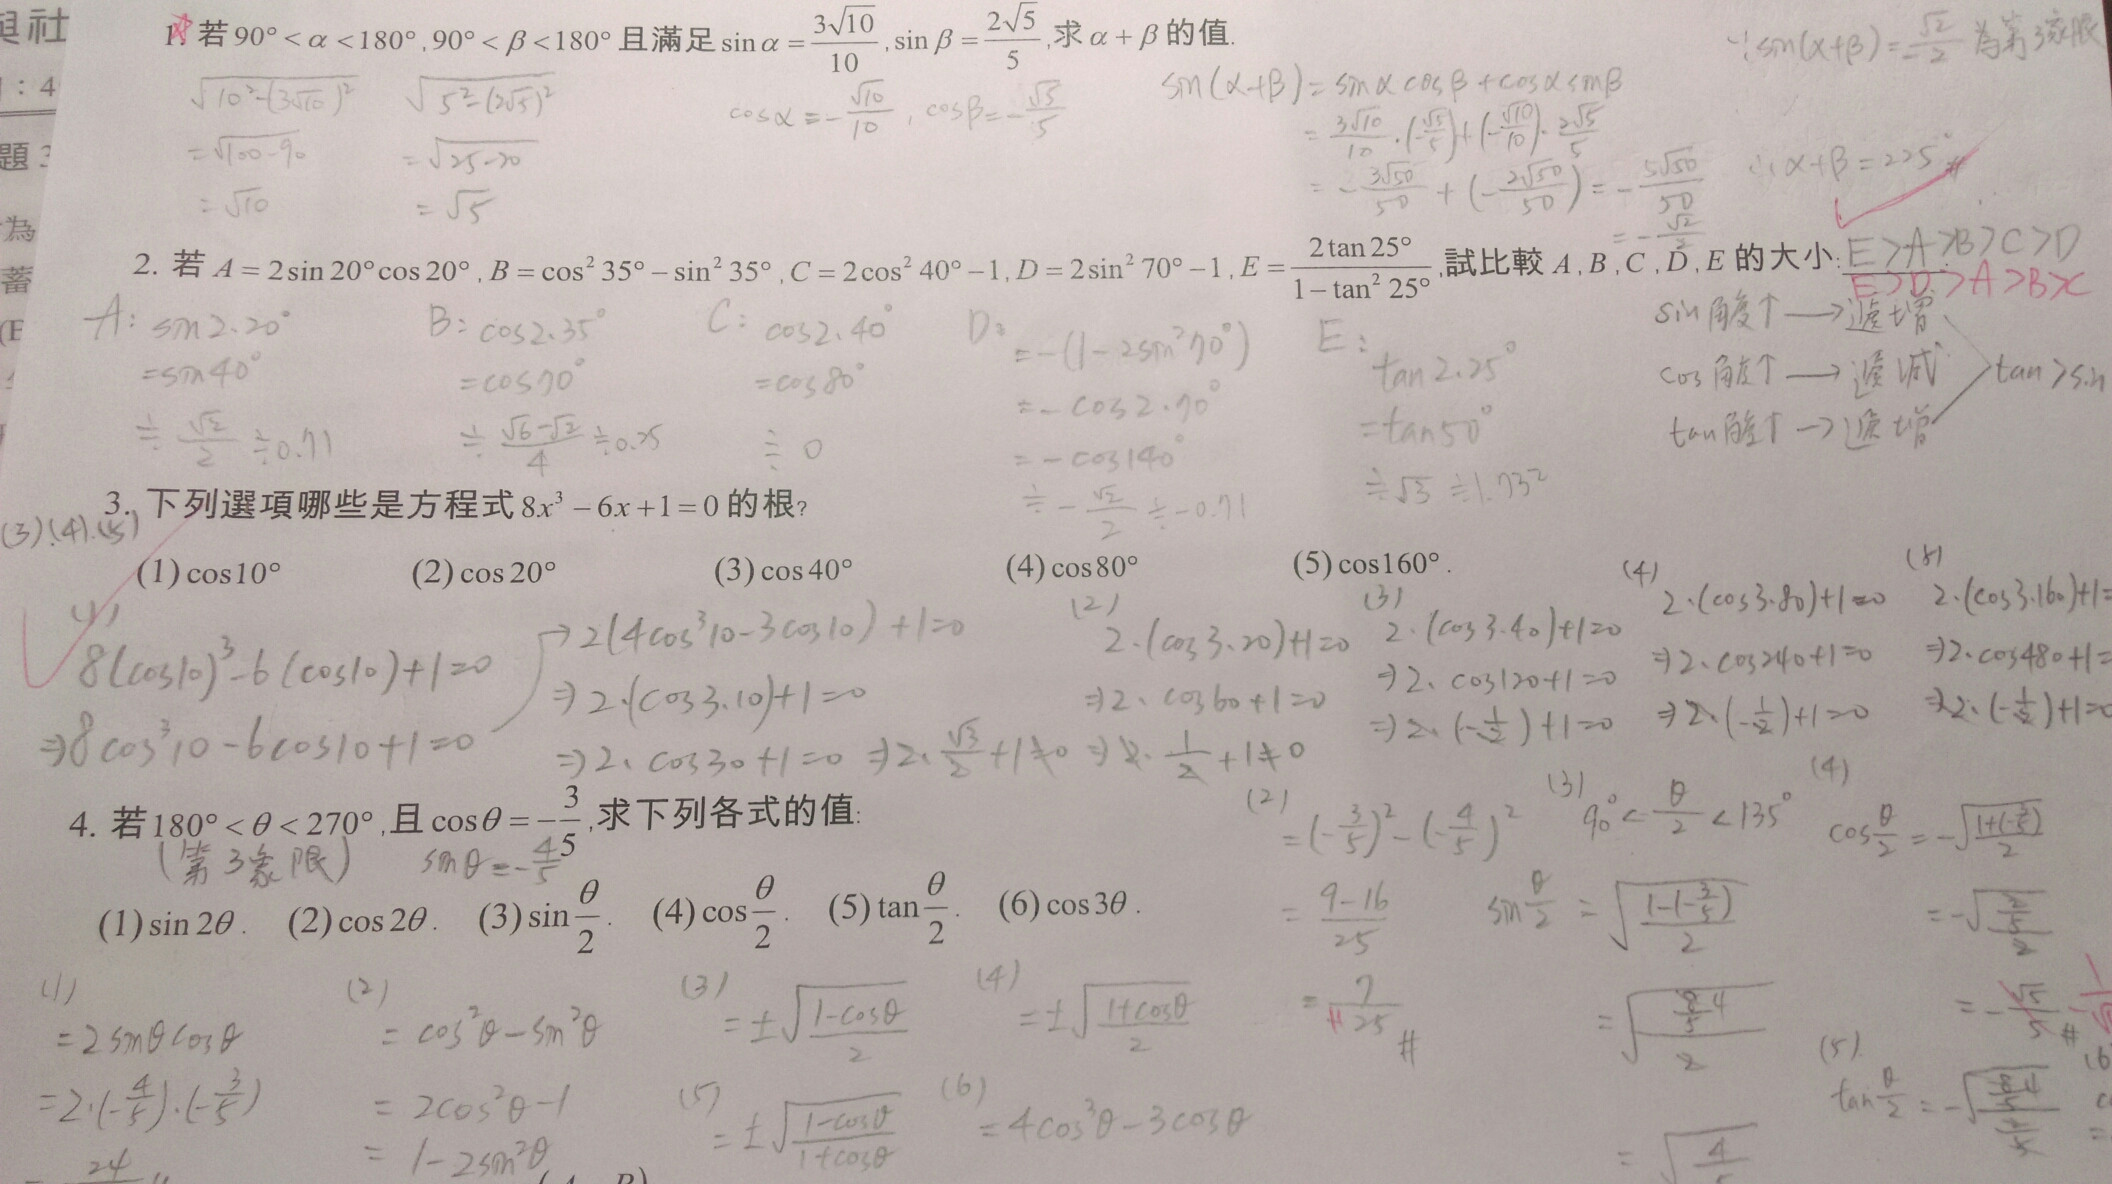 與社
: 4
題 3
為
蓄
(E
1. 若 90° < α < 180° , 90° < β < 180° 且滿足 sin α = 3√10/10 , sin β = 2√5/5 , 求 α + β 的值.
√(10²-(3√10)²) √(5²-(2√5)²)
= √(100-90) = √(25-20)
= √10 = √5
cosα = -√10/10 , cosβ = -√5/5
sin(α+β) = sinα cosβ + cosα sinβ
= 3√10/10 · (-√5/5) + (-√10/10) · 2√5/5
= -3√50/50 + (-2√50/50) = -5√50/50
= -√2/2
∵ sin(α+β) = -√2/2 為第3象限
∴ α+β = 225° #
2. 若 A = 2sin20°cos20° , B = cos²35° − sin²35° , C = 2cos²40° − 1 , D = 2sin²70° − 1 , E = 2tan25°/(1 − tan²25°) , 試比較 A , B , C , D , E 的大小: E>A>B>C>D
E>D>A>B>C
A: sin2·20°
= sin40°
≒ √2/2 ≒ 0.71
B: cos2·35°
= cos70°
≒ (√6-√2)/4 ≒ 0.25
C: cos2·40°
= cos80°
≒ 0
D:
= -(1-2sin²70°)
= -cos2·70°
= -cos140°
≒ -√2/2 ≒ -0.71
E:
tan2·25°
= tan50°
≒ √3 ≒ 1.732
sin角度↑ → 遞增
cos角度↑ → 遞減 tan>sin
tan角度↑ → 遞增
3. 下列選項哪些是方程式 8x³ − 6x + 1 = 0 的根?
(3).(4).(5)
(1) cos10° (2) cos20° (3) cos40° (4) cos80° (5) cos160° .
(1)
8(cos10)³-6(cos10)+1=0
⇒ 8cos³10-6cos10+1=0
→ 2(4cos³10-3cos10)+1=0
⇒ 2·(cos3·10)+1=0
⇒ 2·cos30+1=0 ⇒ 2·√3/2+1≠0
(2)
2·(cos3·20)+1=0
⇒ 2·cos60+1=0
⇒ 2·1/2+1≠0
(3)
2·(cos3·40)+1=0
⇒ 2·cos120+1=0
⇒ 2·(-1/2)+1=0
(4)
2·(cos3·80)+1=0
⇒ 2·cos240+1=0
⇒ 2·(-1/2)+1=0
(5)
2·(cos3·160)+1=
⇒ 2·cos480+1=
⇒ 2·(-1/2)+1=0
4. 若 180° < θ < 270° , 且 cosθ = −3/5 , 求下列各式的值:
(第3象限) sinθ = -4/5
(1) sin2θ . (2) cos2θ . (3) sin θ/2 . (4) cos θ/2 . (5) tan θ/2 . (6) cos3θ .
(1)
= 2sinθcosθ
= 2·(-4/5)·(-3/5)
= 24
(2)
= cos²θ-sin²θ
= 2cos²θ-1
= 1-2sin²θ
(3)
= ±√((1-cosθ)/2)
(4)
= ±√((1+cosθ)/2)
(5)
= ±√((1-cosθ)/(1+cosθ))
(6)
= 4cos³θ-3cosθ
(2)
= (-3/5)²-(-4/5)²
= (9-16)/25
= 7/25 #
(3)
90° < θ/2 < 135°
sin θ/2 = √((1-(-3/5))/2)
= √((8/5)/2)
= √(4/5)
(4)
cos θ/2 = -√((1+(-3/5))/2)
= -√((2/5)/2)
= -√5/5 #
(5)
tan θ/2 = -√
(6